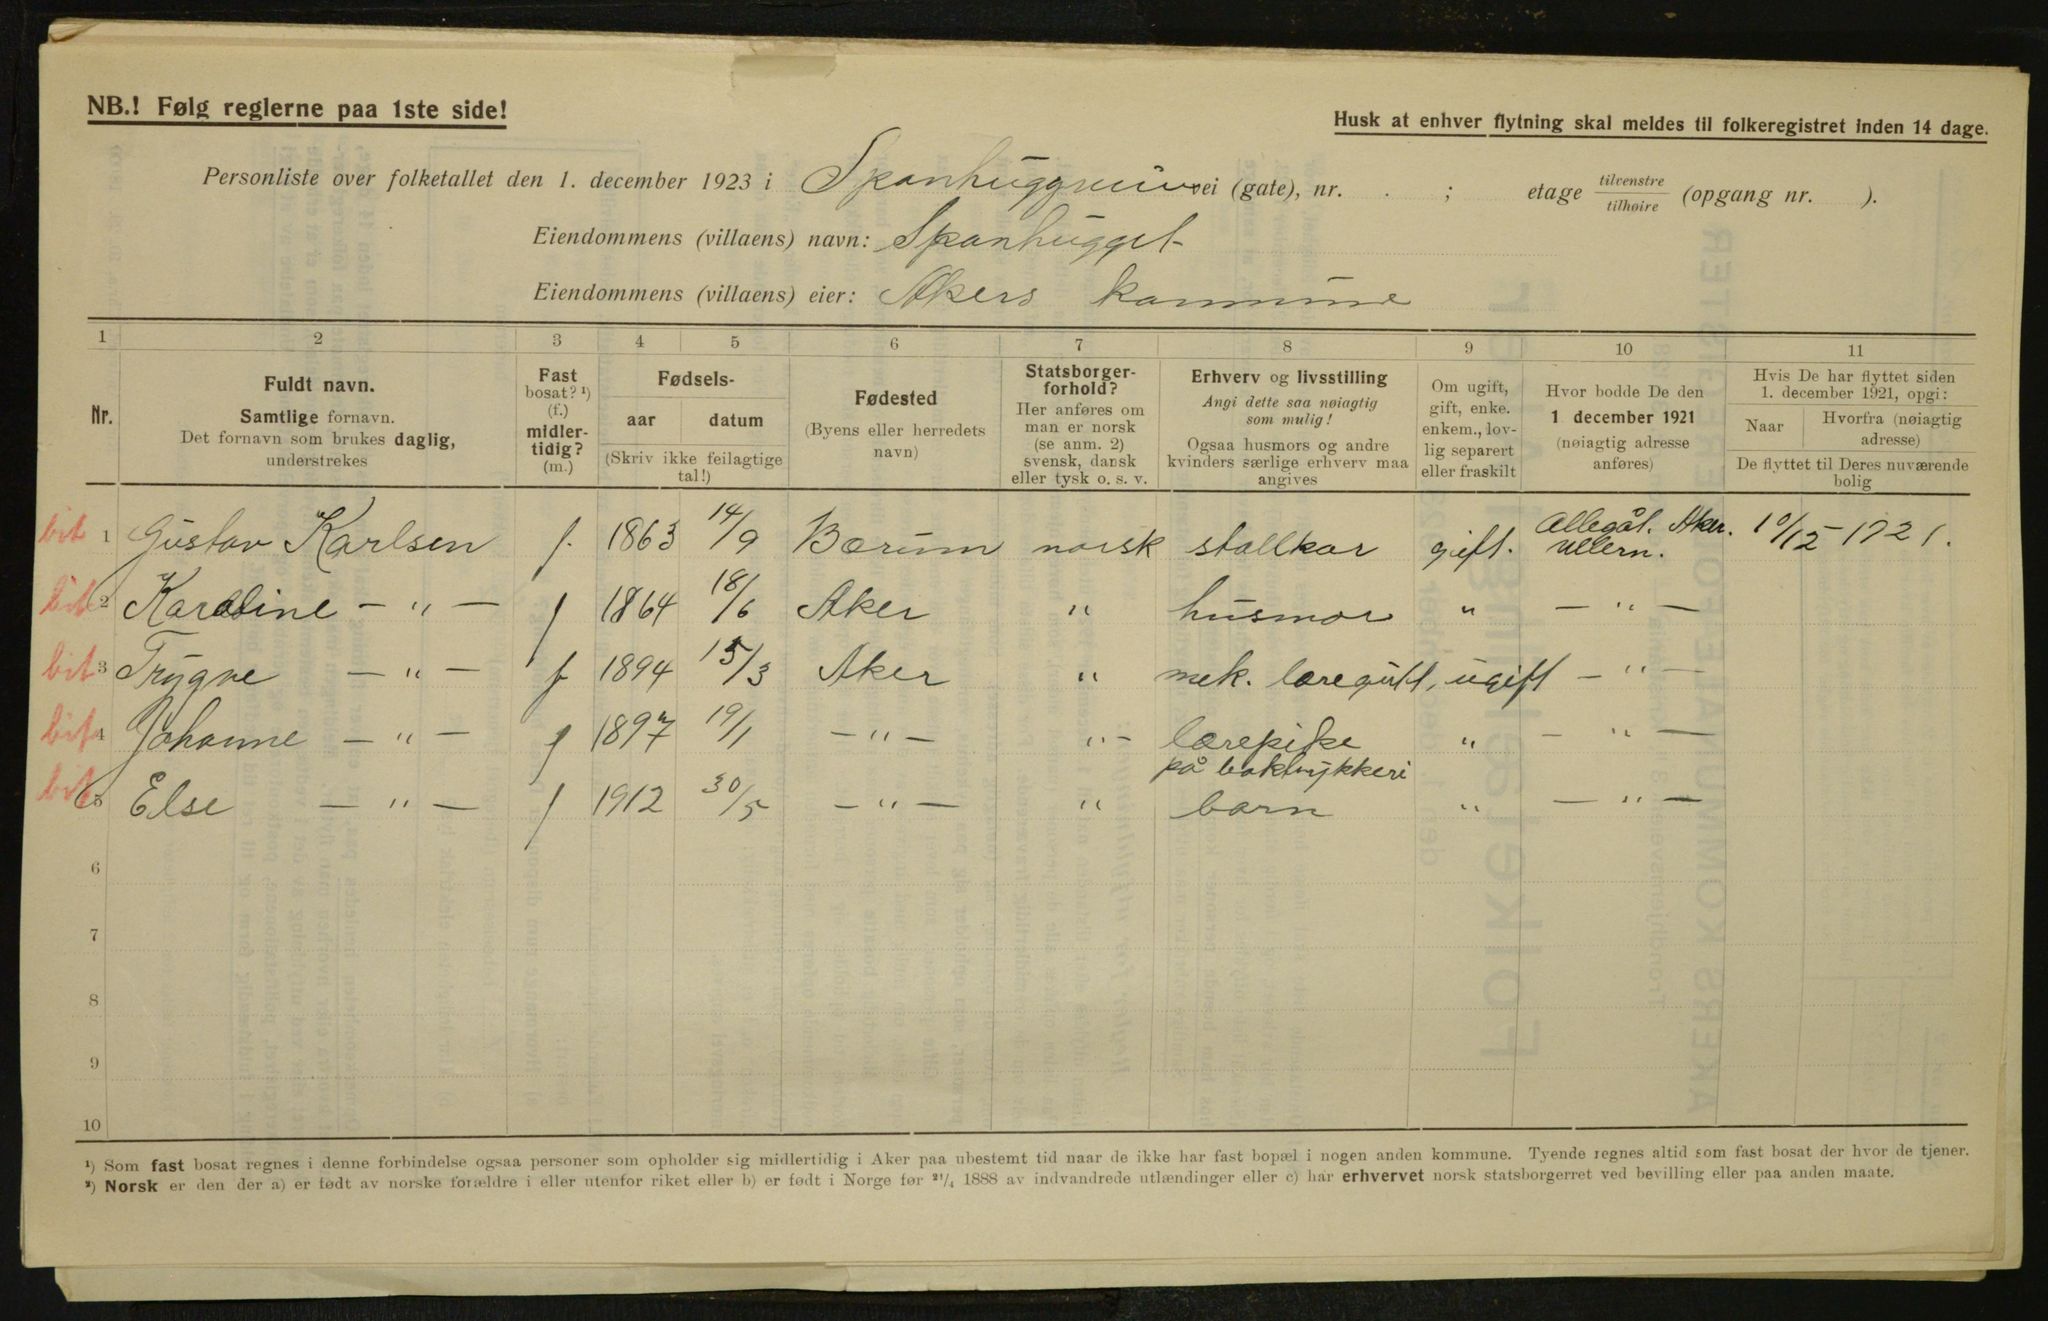 NB.! Følg reglerne paa 1ste side!
Husk at enhver flytning skal meldes til folkeregistret inden 14 dage.
Personliste over folketallet den 1. december 1923 i vei (gate), nr. ; etage tilvenstre/tilhøire (opgang nr. ).
Eiendommens (villaens) navn: Spanhugget
Eiendommens (villaens) eier: Akers kommune
1 2 3 4 5 6 7 8 9 10 11
Nr.
Fuldt navn.
Samtlige fornavn.
Det fornavn som brukes daglig,
understrekes
Fast
bosat? ¹)
(f.)
midler-
tidig?
(m.)
Fødsels-
aar datum
(Skriv ikke feilagtige
tal!)
Fødested
(Byens eller herredets
navn)
Statsborger-
forhold?
Her anføres om
man er norsk
(se anm. 2)
svensk, dansk
eller tysk o. s. v.
Erhverv og livsstilling
Angi dette saa nøiagtig
som mulig!
Ogsaa husmors og andre
kvinders særlige erhverv maa
angives
Om ugift,
gift, enke.
enkem., lov-
lig separert
eller fraskilt
Hvor bodde De den
1 december 1921
(nøiagtig adresse
anføres)
Hvis De har flyttet siden
1. december 1921, opgi:
Naar Hvorfra (nøiagtig
adresse)
De flyttet til Deres nuværende
bolig
bit 1 Gustav Karlsen f. 1863 14/9 Bærum norsk stallkar gift. Aker. Ullern. 10/12-1921.
bit 2 Karoline — " — f 1864 18/6 Aker " husmor " — " —
bit 3 Trygve — " — f 1894 15/3 Aker " mek. læregutt, ugift — " —
bit 4 Johanne — " — f 1897 19/1 — " — " — lærepike " — " —
på boktrykkeri
bit 5 Else — " — f 1912 30/5 — " — " barn " — " —
6
7
8
9
10
¹) Som fast bosat regnes i denne forbindelse ogsaa personer som opholder sig midlertidig i Aker paa ubestemt tid naar de ikke har fast bopæl i nogen anden kommune. Tyende regnes altid som fast bosat der hvor de tjener.
²) Norsk er den der a) er født av norske forældre i eller utenfor riket eller b) er født i Norge før ²¹/₄ 1888 av indvandrede utlændinger eller c) har erhvervet norsk statsborgerret ved bevilling eller paa anden maate.